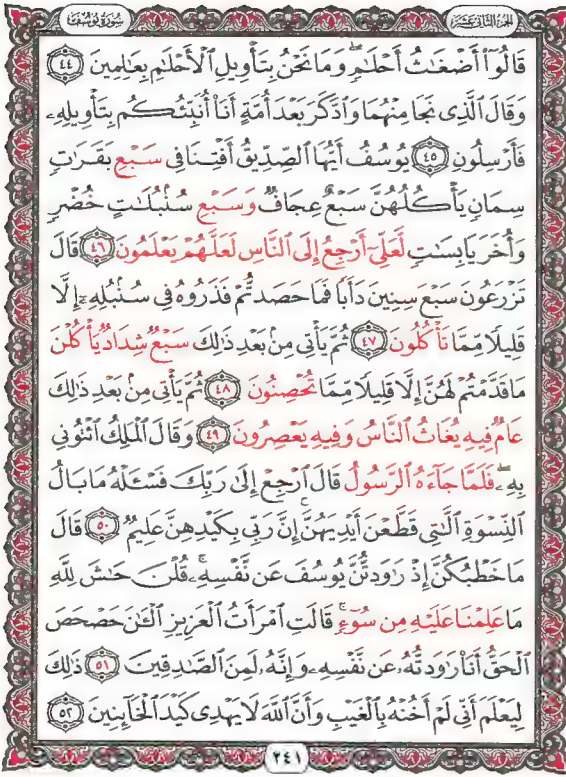 الجزء الثاني عشر
سورة يوسف
قَالُوٓا۟ أَضْغَٰثُ أَحْلَٰمٍ ۖ وَمَا نَحْنُ بِتَأْوِيلِ ٱلْأَحْلَٰمِ بِعَٰلِمِينَ ٤٤
وَقَالَ ٱلَّذِى نَجَا مِنْهُمَا وَٱدَّكَرَ بَعْدَ أُمَّةٍ أَنَا۠ أُنَبِّئُكُم بِتَأْوِيلِهِۦ
فَأَرْسِلُونِ ٤٥ يُوسُفُ أَيُّهَا ٱلصِّدِّيقُ أَفْتِنَا فِى سَبْعِ بَقَرَٰتٍ
سِمَانٍ يَأْكُلُهُنَّ سَبْعٌ عِجَافٌ وَسَبْعِ سُنۢبُلَٰتٍ خُضْرٍ
وَأُخَرَ يَابِسَٰتٍ لَّعَلِّىٓ أَرْجِعُ إِلَى ٱلنَّاسِ لَعَلَّهُمْ يَعْلَمُونَ ٤٦ قَالَ
تَزْرَعُونَ سَبْعَ سِنِينَ دَأَبًا فَمَا حَصَدتُّمْ فَذَرُوهُ فِى سُنۢبُلِهِۦٓ إِلَّا
قَلِيلًا مِّمَّا تَأْكُلُونَ ٤٧ ثُمَّ يَأْتِى مِنۢ بَعْدِ ذَٰلِكَ سَبْعٌ شِدَادٌ يَأْكُلْنَ
مَا قَدَّمْتُمْ لَهُنَّ إِلَّا قَلِيلًا مِّمَّا تُحْصِنُونَ ٤٨ ثُمَّ يَأْتِى مِنۢ بَعْدِ ذَٰلِكَ
عَامٌ فِيهِ يُغَاثُ ٱلنَّاسُ وَفِيهِ يَعْصِرُونَ ٤٩ وَقَالَ ٱلْمَلِكُ ٱئْتُونِى
بِهِۦ ۖ فَلَمَّا جَآءَهُ ٱلرَّسُولُ قَالَ ٱرْجِعْ إِلَىٰ رَبِّكَ فَسْـَٔلْهُ مَا بَالُ
ٱلنِّسْوَةِ ٱلَّٰتِى قَطَّعْنَ أَيْدِيَهُنَّ ۚ إِنَّ رَبِّى بِكَيْدِهِنَّ عَلِيمٌ ٥٠ قَالَ
مَا خَطْبُكُنَّ إِذْ رَٰوَدتُّنَّ يُوسُفَ عَن نَّفْسِهِۦ ۚ قُلْنَ حَٰشَ لِلَّهِ
مَا عَلِمْنَا عَلَيْهِ مِن سُوٓءٍ ۚ قَالَتِ ٱمْرَأَتُ ٱلْعَزِيزِ ٱلْـَٰٔنَ حَصْحَصَ
ٱلْحَقُّ أَنَا۠ رَٰوَدتُّهُۥ عَن نَّفْسِهِۦ وَإِنَّهُۥ لَمِنَ ٱلصَّٰدِقِينَ ٥١ ذَٰلِكَ
لِيَعْلَمَ أَنِّى لَمْ أَخُنْهُ بِٱلْغَيْبِ وَأَنَّ ٱللَّهَ لَا يَهْدِى كَيْدَ ٱلْخَآئِنِينَ ٥٢
٢٤١